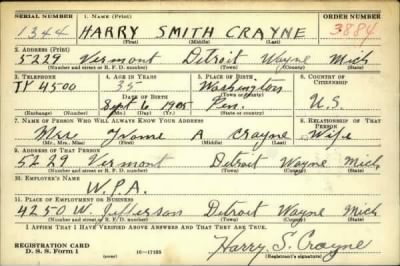 SERIAL NUMBER 1. NAME (Print) ORDER NUMBER
1344 HARRY SMITH CRAYNE 3884
(First) (Middle) (Last)
2. ADDRESS (Print)
5229 Vermont Detroit Wayne Mich
(Number and street or R. F. D. number) (Town) (County) (State)
3. TELEPHONE 4. AGE IN YEARS 5. PLACE OF BIRTH 6. COUNTRY OF CITIZENSHIP
TY 4500 35 Washington
DATE OF BIRTH (Town or county)
Sept 6 1905 Pen. U.S.
(Exchange) (Number) (Mo.) (Day) (Yr.) (State or country)
7. NAME OF PERSON WHO WILL ALWAYS KNOW YOUR ADDRESS 8. RELATIONSHIP OF THAT PERSON
Mrs A Crayne Wife
(Mr., Mrs., Miss) (First) (Middle) (Last)
9. ADDRESS OF THAT PERSON
5229 Vermont Detroit Wayne Mich.
(Number and street or R. F. D. number) (Town) (County) (State)
10. EMPLOYER'S NAME
W.P.A.
11. PLACE OF EMPLOYMENT OR BUSINESS
4250 W. Jefferson Detroit Wayne Mich
(Number and street or R. F. D. number) (Town) (County) (State)
I AFFIRM THAT I HAVE VERIFIED ABOVE ANSWERS AND THAT THEY ARE TRUE.
Harry S. Crayne
REGISTRATION CARD
D. S. S. Form 1 (over) (Registrant's signature)